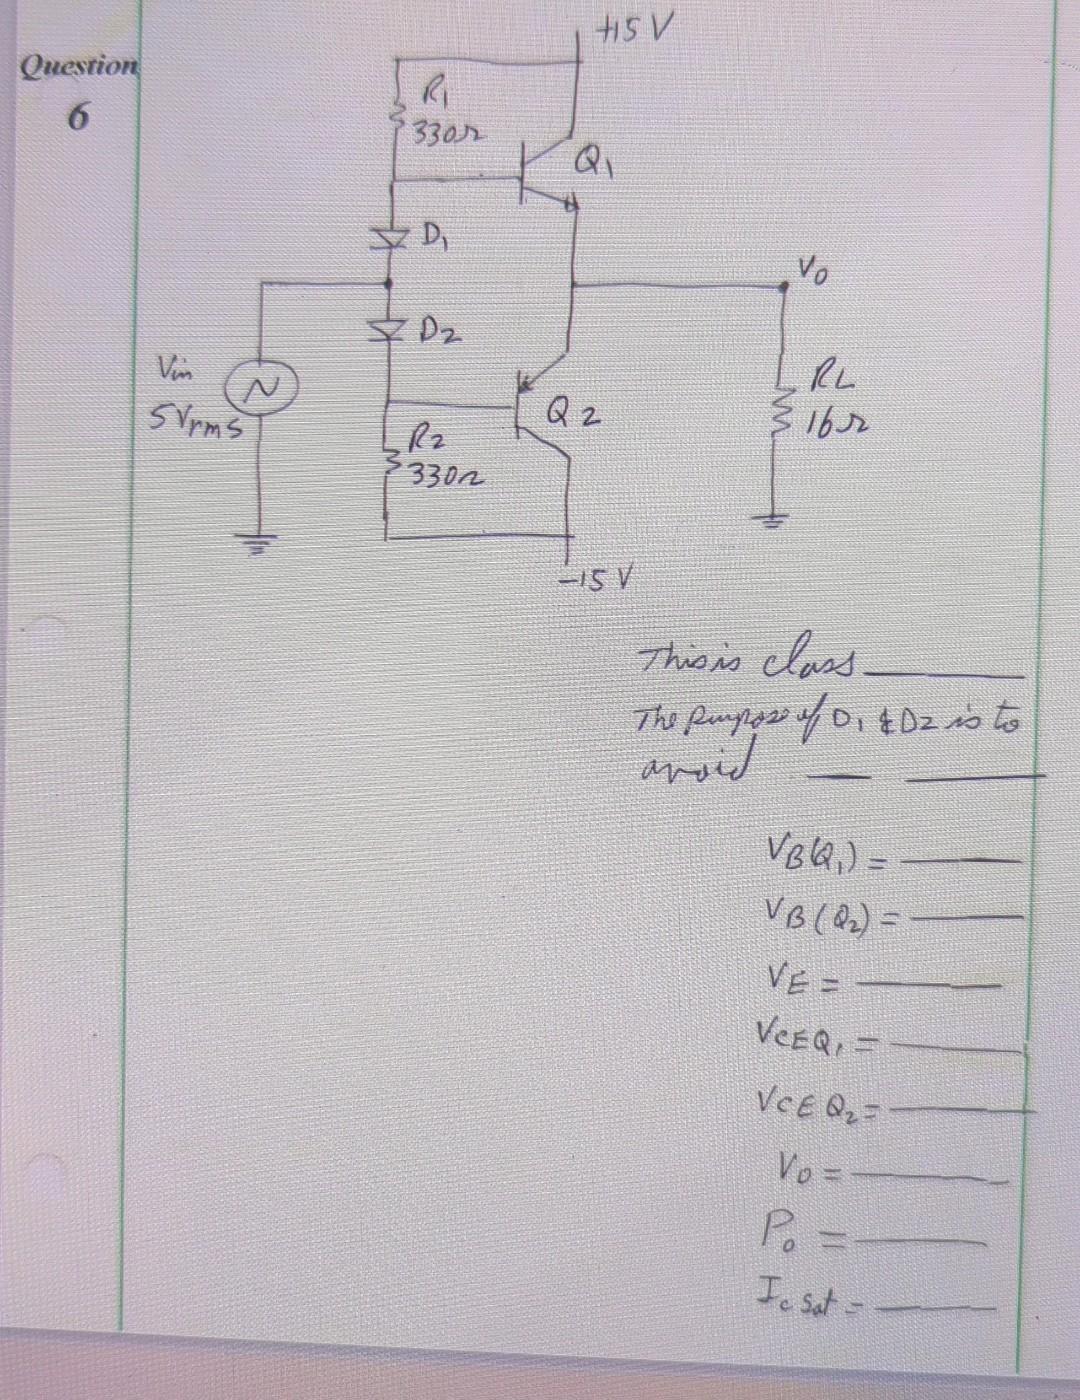 Question
6
+15 V
R1
330Ω
Q1
D1
Vo
D2
Vin
5Vrms
Q2
RL
16Ω
R2
330Ω
-15 V
This is class ______
The purpose of D1 & D2 is to
avoid ___ ______
VB(Q1) = ______
VB(Q2) = ______
VE = ______
VCEQ1 = ______
VCEQ2 = ______
Vo = ______
Po = ______
Ic sat = ______